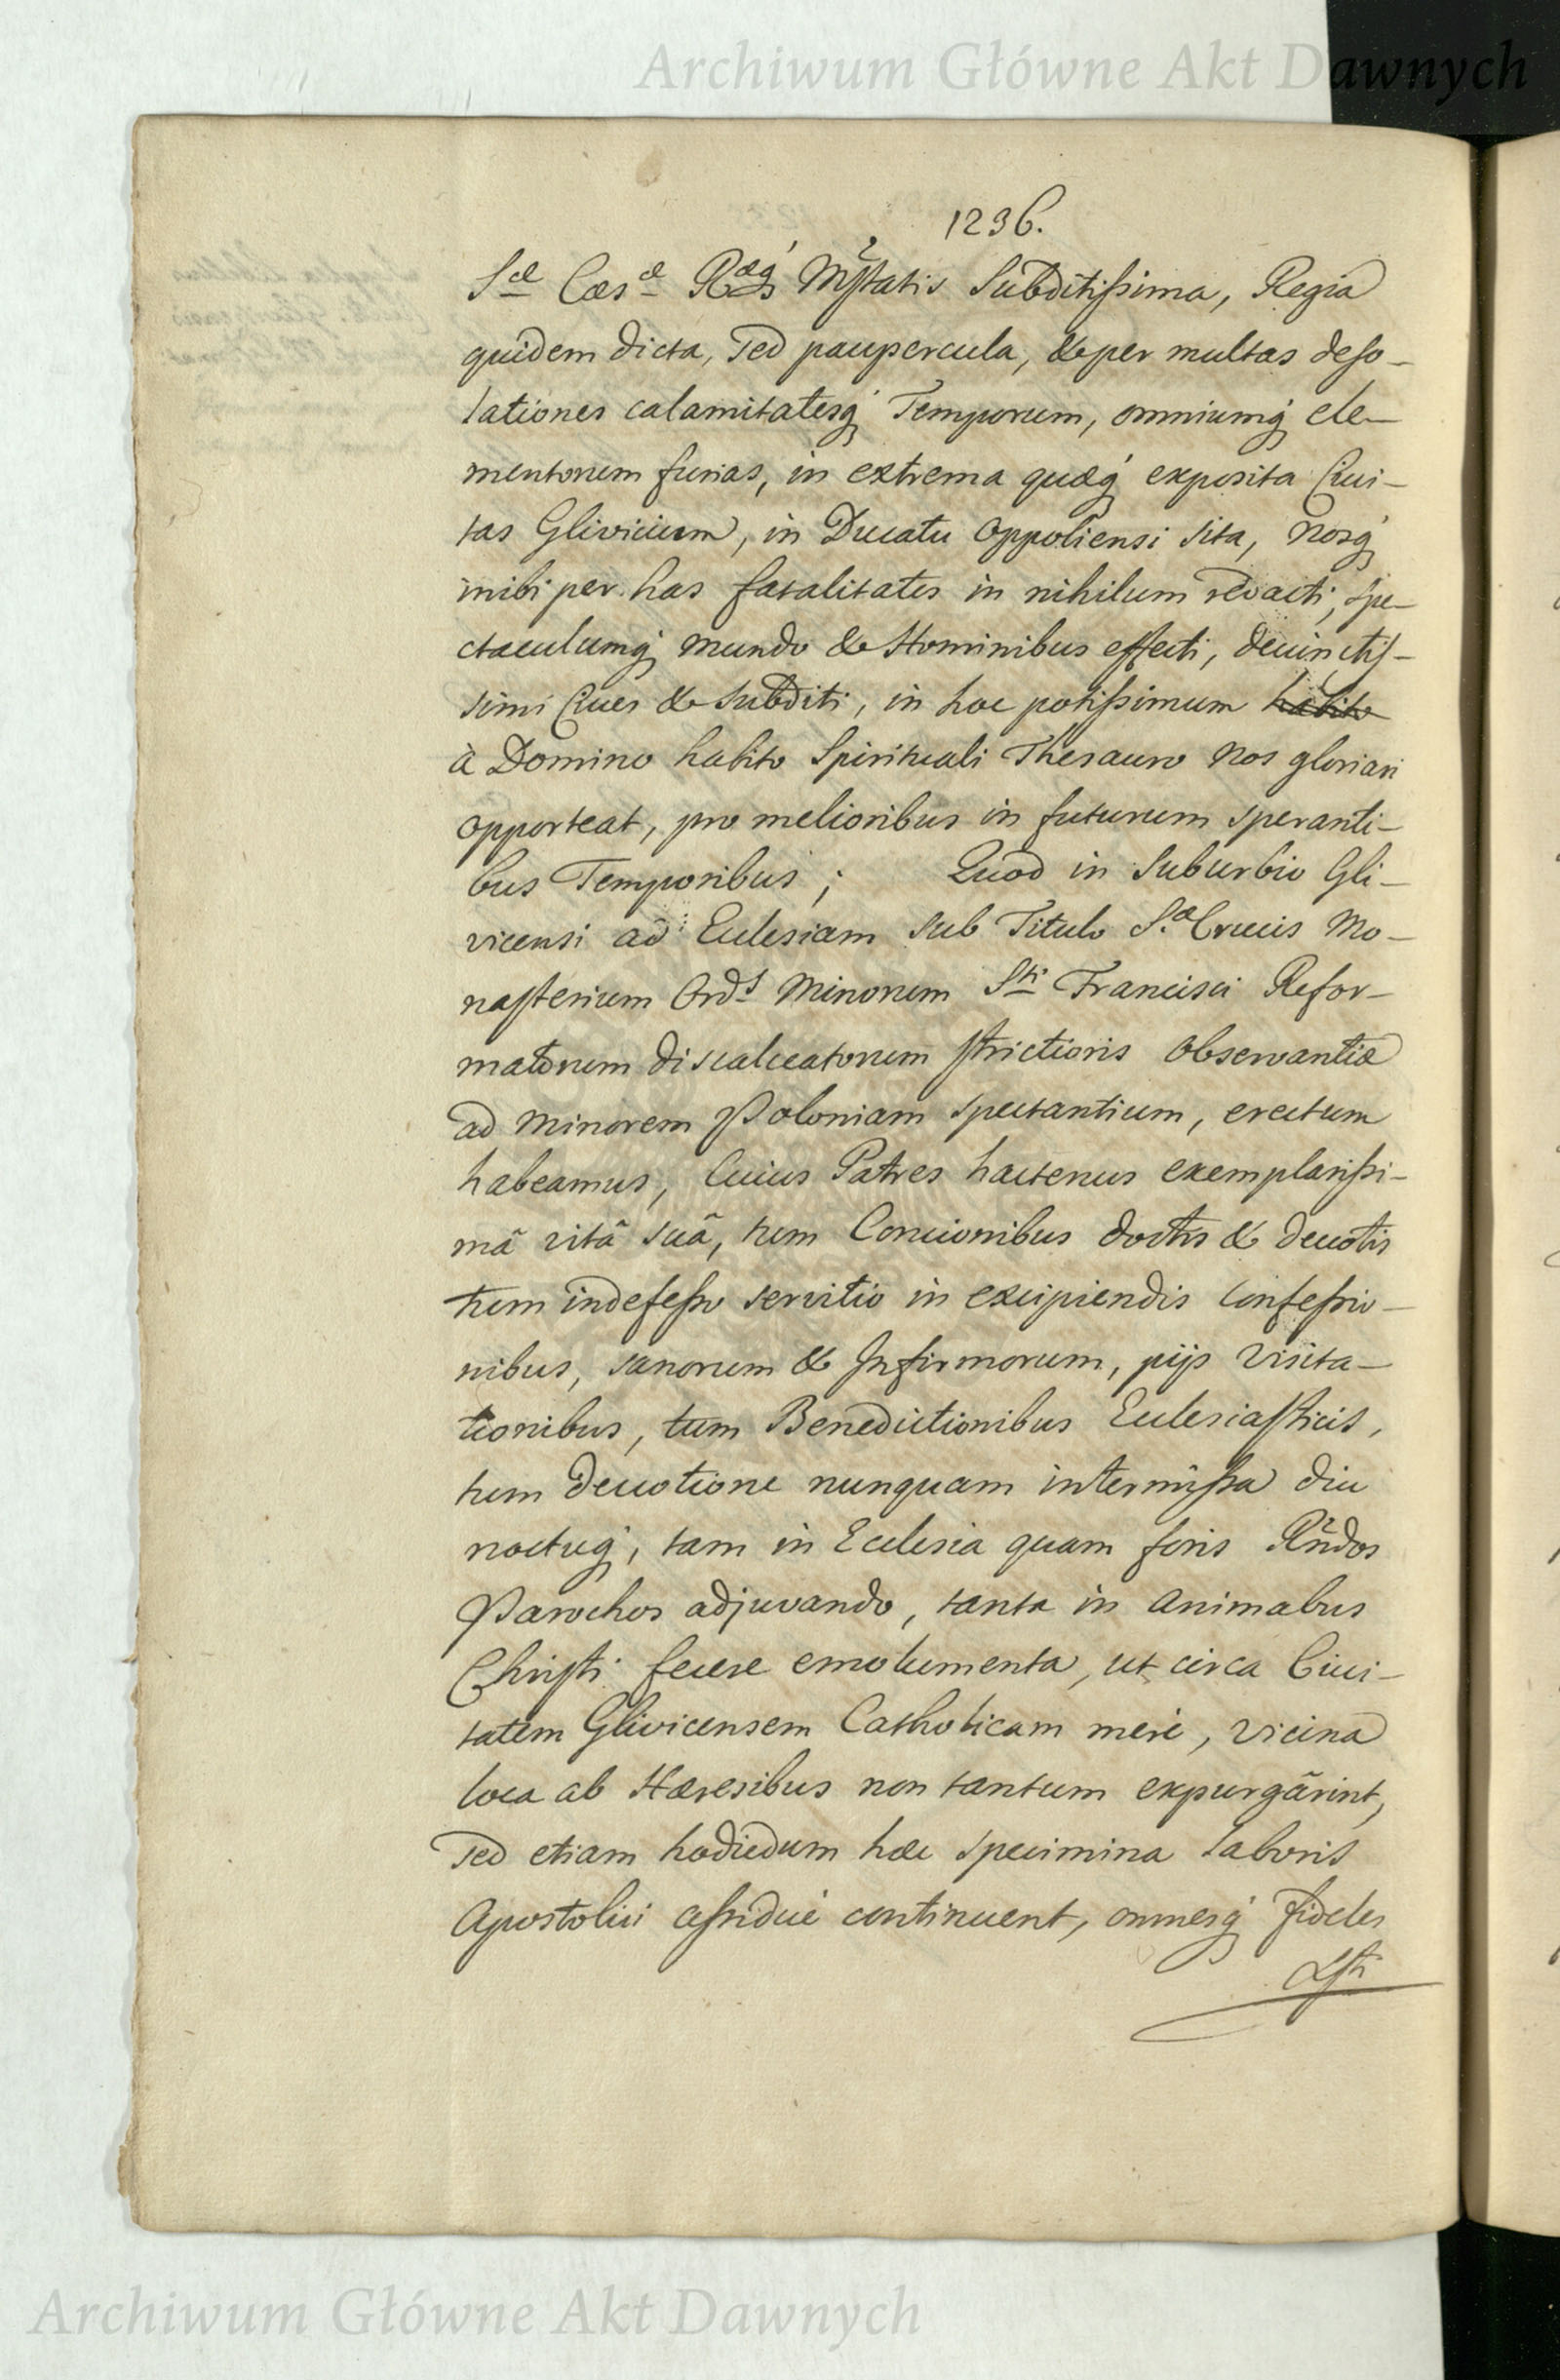 Archiwum Główne Akt Dawnych
1296.
Sæ Cæsæ Ræǵ Mṣtatis Subditissima, Regia
quidem dicta, sed paupercula, & per multas deso-
lationes calamitatesq́ Temporum, omniumq́ ele-
mentorum furias, in extrema quæq́ exposita Ciui-
tas Glivicium, in Ducatu Oppoliensi sita, Nosq́
inibi per has fatalitates in nihilum redacti, spe-
ctaculumq́ mundo & Hominibus effecti, deuinctis-
simi Ciues & subditi, in hoc potissimum habito
à Domino habito Spirituali Thesauro nos gloriari
opporteat, pro melioribus in futurum speranti-
bus Temporibus; Quod in Suburbio Gli-
vicensi ad Eclesiam sub Titulo S.æ Crucis Mo-
nasterium Ords Minorum Sti Francisci Refor-
matorum discalceatorum strictioris Observantiæ
ad minorem Poloniam spectantium, erectum
habeamus, Cuius Patres hactenus exemplarissi-
mâ vitâ suâ, tum Concionibus doctis & deuotis
tum indefesso servitio in excipiendis confessio-
nibus, sanorum & Infirmorum, pijs visita-
tionibus, tum Benedictionibus Eclesiasticis,
tum deuotione nunquam intermissa diu
noctuq́, tam in Eclesia quam foris Rñdos
Parochos adjuvando, tanta in animabus
Christi fecere emolumenta, ut circa Ciui-
tatem Glivicensem Catholicam merè, vicina
loca ab Hæresibus non tantum expurgârint,
sed etiam hodiedum hæc specimina laboris
Apostolici assiduè continuent, omnesq́ fideles
Xsti
Archiwum Główne Akt Dawnych